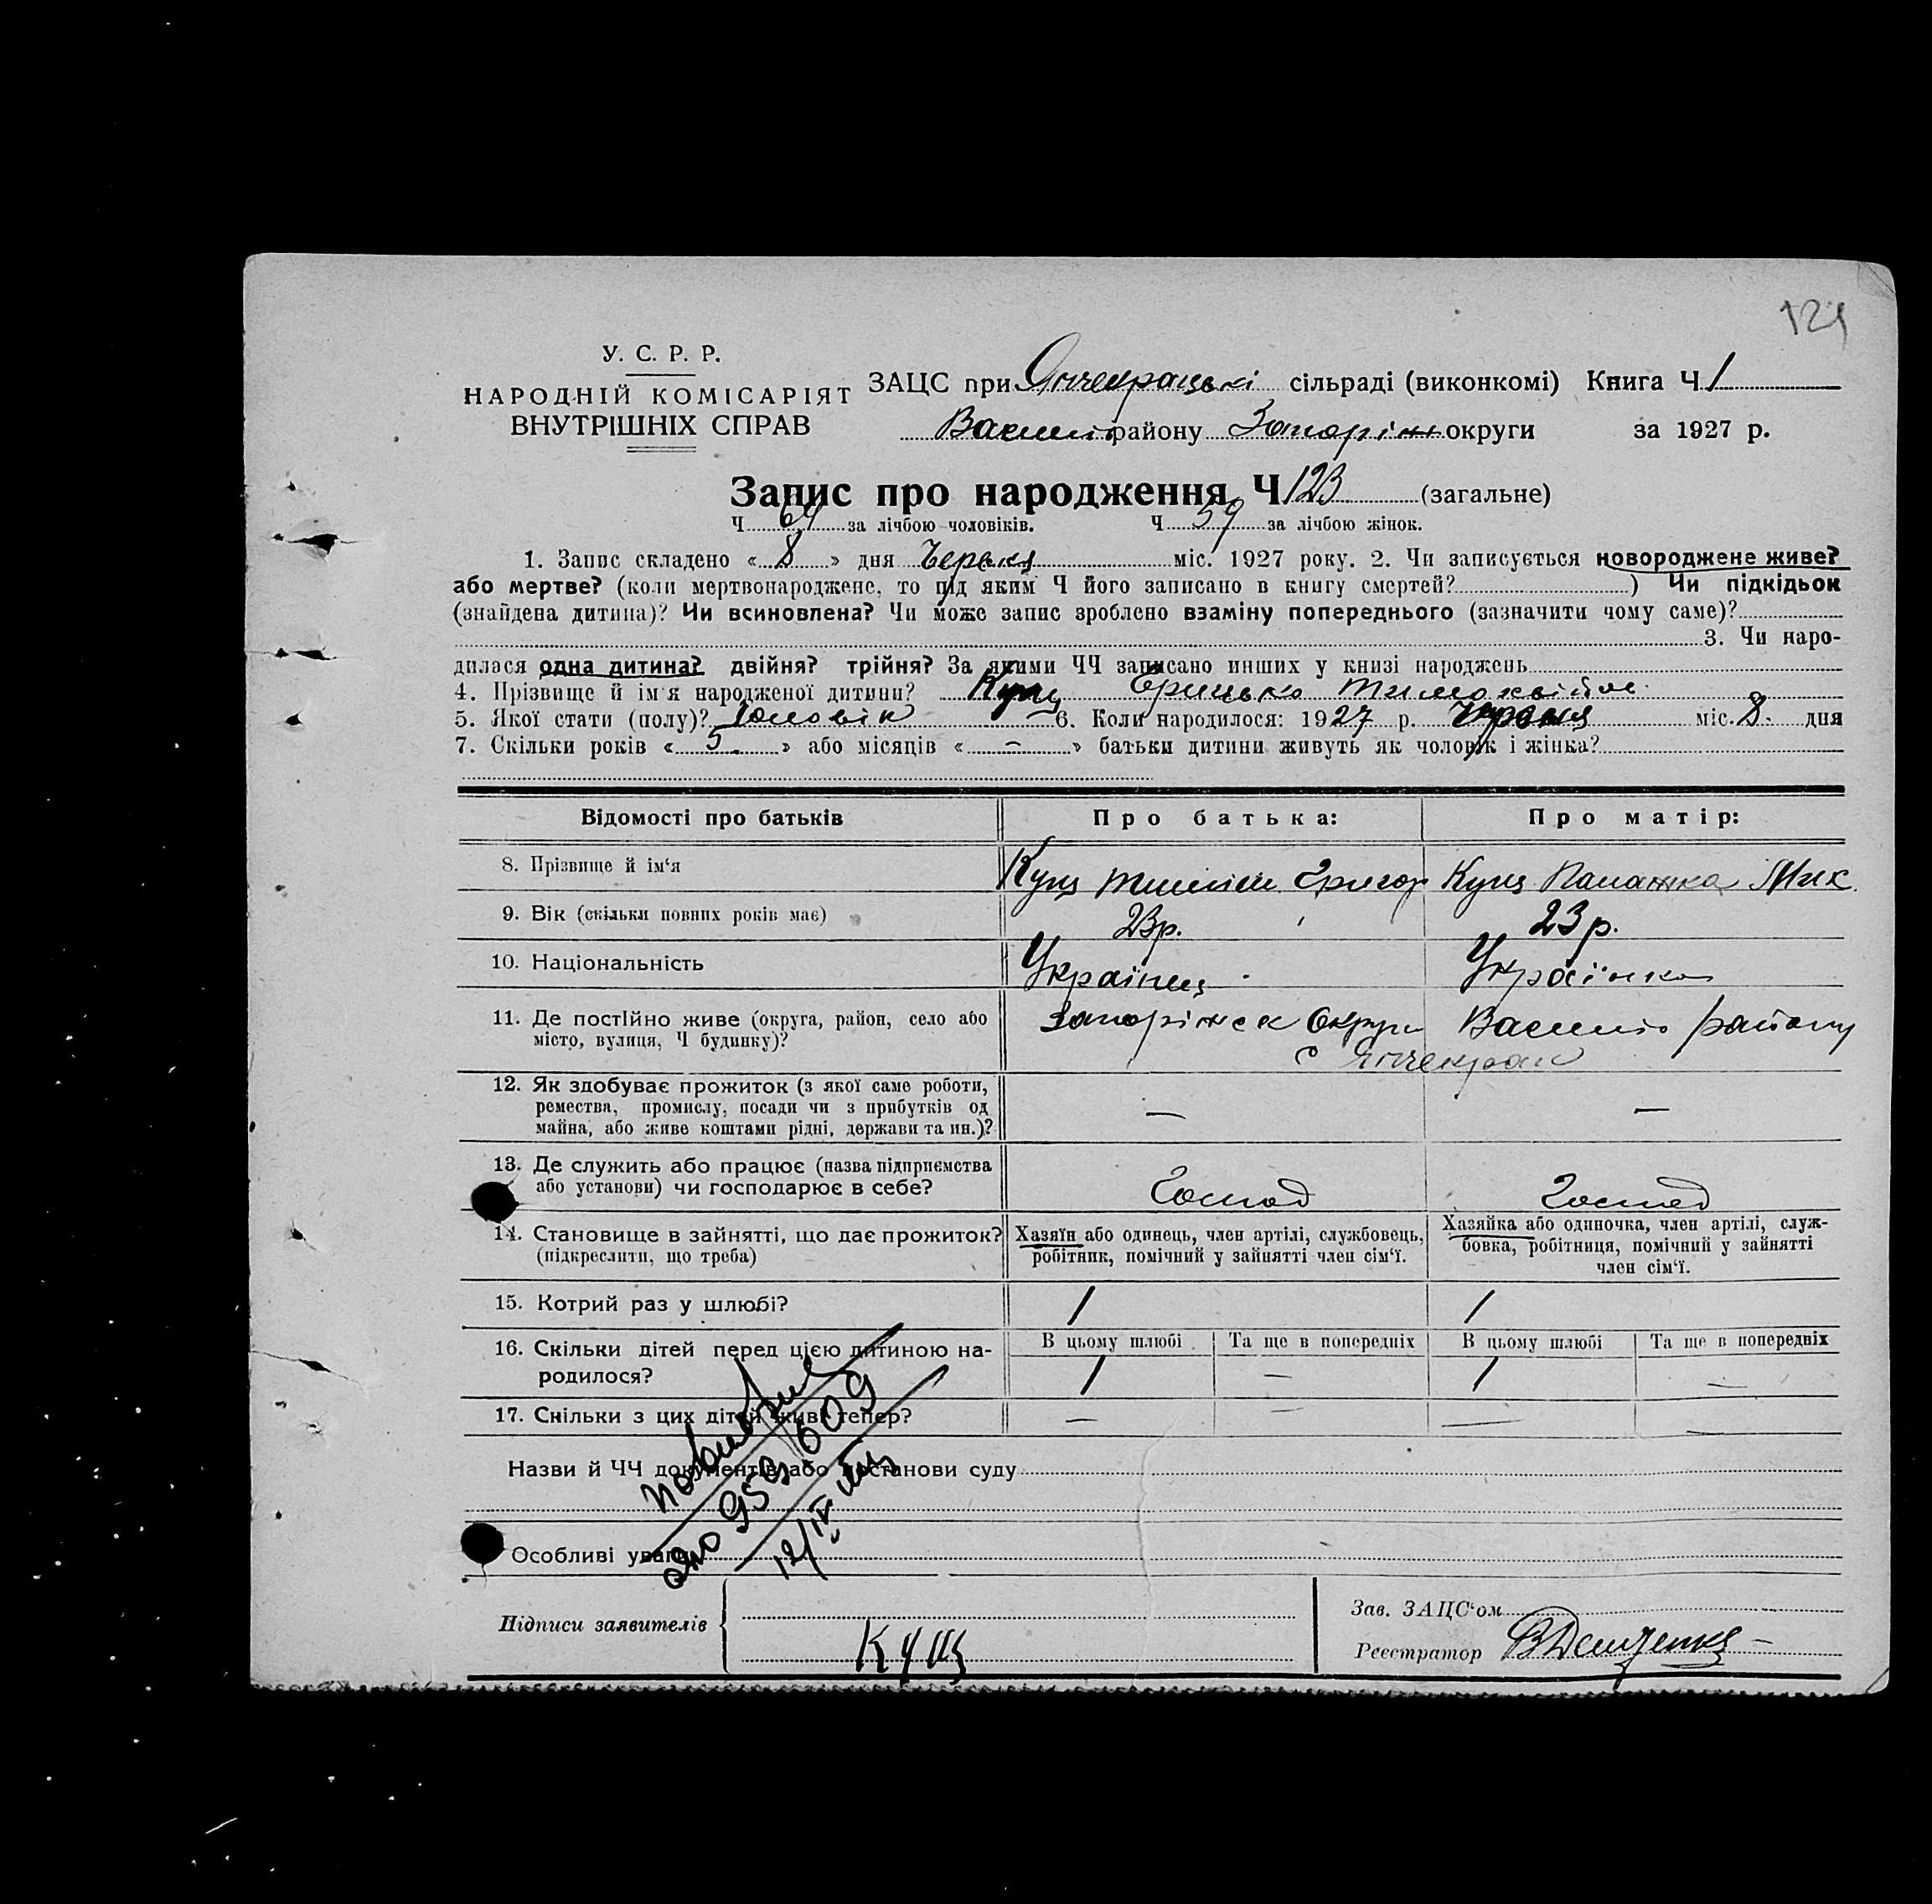 121
У. С. Р. Р.
НАРОДНІЙ КОМІСАРІЯТ
ВНУТРІШНІХ СПРАВ
ЗАЦС при Янчекрацькі сільраді (виконкомі) Книга Ч 1
Василів району Запоріж округи за 1927 р.
Запис про народження Ч 123 (загальне)
Ч 64 за лічбою чоловіків. Ч 59 за лічбою жінок.
1. Запис складено « 8 » дня Червня міс. 1927 року. 2. Чи записується новороджене живе?
або мертве? (коли мертвонароджене, то під яким Ч його записано в книгу смертей? ) Чи підкідьок
(знайдена дитина)? Чи всиновлена? Чи може запис зроблено взаміну попереднього (зазначити чому саме)?
3. Чи наро-
дилася одна дитина? двійня? трійня? За якими ЧЧ записано инших у книзі народжень
4. Прізвище й ім'я народженої дитини? Куц Грицько Тимохвійов
5. Якої стати (полу)? Чоловік 6. Коли народилося: 1927 р. Червня міс. 8. дня
7. Скільки років « 5 » або місяців « – » батьки дитини живуть як чоловік і жінка?
Відомості про батьків Про батька: Про матір:
8. Прізвище й ім'я Куц Григор Куц Палажка Мик
9. Вік (скільки повних років має) 23р. 23 р.
10. Національність Українец Українка
11. Де постійно живе (округа, район, село або Запоріжск Округи Василів району
місто, вулиця, Ч будинку)? с Янчекрак
12. Як здобуває прожиток (з якої саме роботи,
ремества, промислу, посади чи з прибутків од — —
майна, або живе коштами рідні, держави та ин.)?
13. Де служить або працює (назва підприємства
або установи) чи господарює в себе? Господ Господ
14. Становище в зайнятті, що дає прожиток? Хазяїн або одинець, член артілі, службовець, Хазяйка або одиночка, член артілі, служ-
(підкреслити, що треба) робітник, помічний у зайнятті член сім'ї. бовка, робітниця, помічний у зайнятті
член сім'ї.
15. Котрий раз у шлюбі? 1 1
16. Скільки дітей перед цією дитиною на- В цьому шлюбі Та ще в попередніх В цьому шлюбі Та ще в попередніх
родилося? 1 — 1 —
17. Скільки з цих дітей живі тепер? — — — —
Назви й ЧЧ документів або постанови суду
Особливі уваги
12/IV
Підписи заявителів Куц
Зав. ЗАЦС'ом
Реєстратор